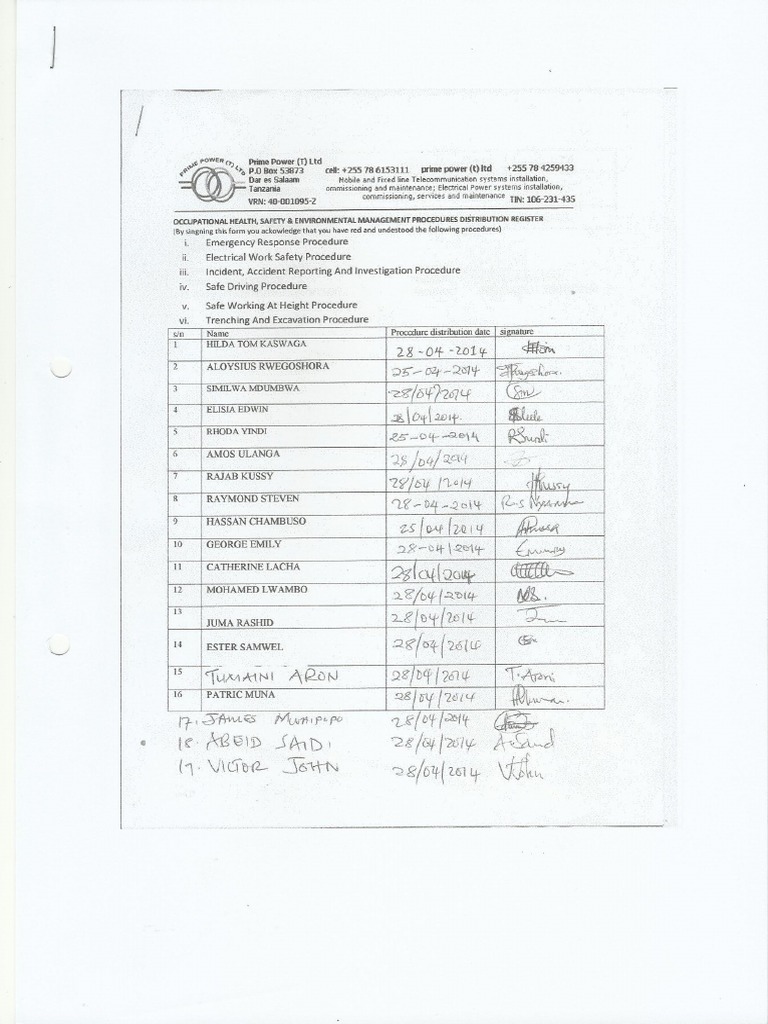 PRIME POWER (T) LTD
Prime Power (T) Ltd
P.O Box 53873 cell: +255 78 6153111 prime power (t) ltd +255 78 4259433
Dar es Salaam Mobile and Fixed line Telecommunication systems installation,
Tanzania ommissioning and maintenance; Electrical Power systems installation,
commissioning, services and maintenance TIN: 106-231-435
VRN: 40-001095-Z
OCCUPATIONAL HEALTH, SAFETY & ENVIRONMENTAL MANAGEMENT PROCEDURES DISTRIBUTION REGISTER
(By singning this form you ackowledge that you have red and undestood the following procedures)
i. Emergency Response Procedure
ii. Electrical Work Safety Procedure
iii. Incident, Accident Reporting And Investigation Procedure
iv. Safe Driving Procedure
v. Safe Working At Height Procedure
vi. Trenching And Excavation Procedure
s/n Name Procedure distribution date signature
1 HILDA TOM KASWAGA 28-04-2014
2 ALOYSIUS RWEGOSHORA 25-04-2014
3 SIMILWA MDUMBWA 28/04/2014 Sm
4 ELISIA EDWIN 28/04/2014.
5 RHODA YINDI 25-04-2014
6 AMOS ULANGA 28/04/2014
7 RAJAB KUSSY 28/04/2014
8 RAYMOND STEVEN 28-04-2014
9 HASSAN CHAMBUSO 25/04/2014
10 GEORGE EMILY 28-04/2014
11 CATHERINE LACHA 28/04/2014
12 MOHAMED LWAMBO 28/04/2014
13 JUMA RASHID 28/04/2014
14 ESTER SAMWEL 28/04/2014
15 TUMAINI ARON 28/04/2014 T. Aron
16 PATRIC MUNA 28/04/2014
17. JAMES 28/04/2014
18. ABEID SAIDI 28/04/2014 A.Said
17. VICTOR JOHN 28/04/2014 VJohn